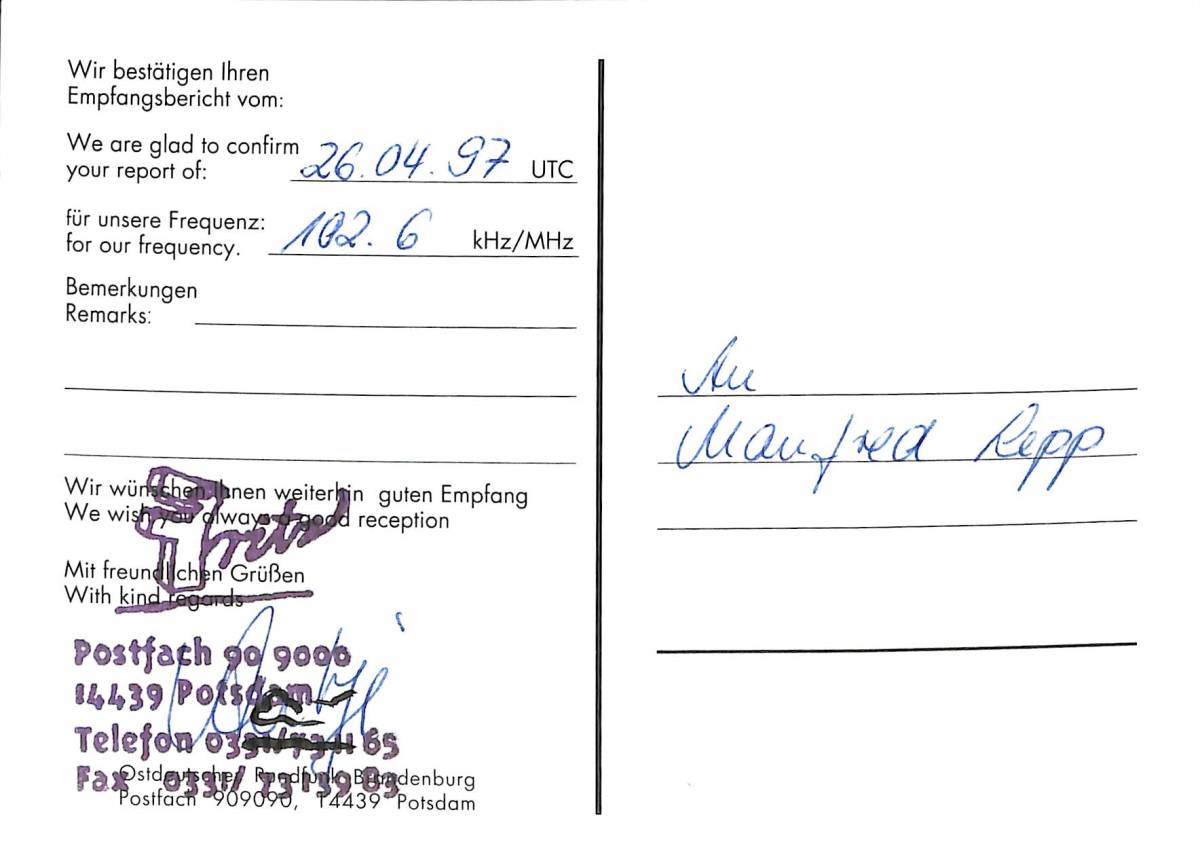 Wir bestätigen Ihren
Empfangsbericht vom:
We are glad to confirm
your report of: 26.04.97 UTC
für unsere Frequenz:
for our frequency. 102.6 kHz/MHz
Bemerkungen
Remarks:
Wir wünschen Ihnen weiterhin guten Empfang
We wish you always a good reception
Fritz
Mit freundlichen Grüßen
With kind regards
Postfach 90 9000
14439 Potsdam
Telefon
Fax 0331/
Ostdeutscher Rundfunk Brandenburg
Postfach 909090, 14439 Potsdam
An
Manfred Repp